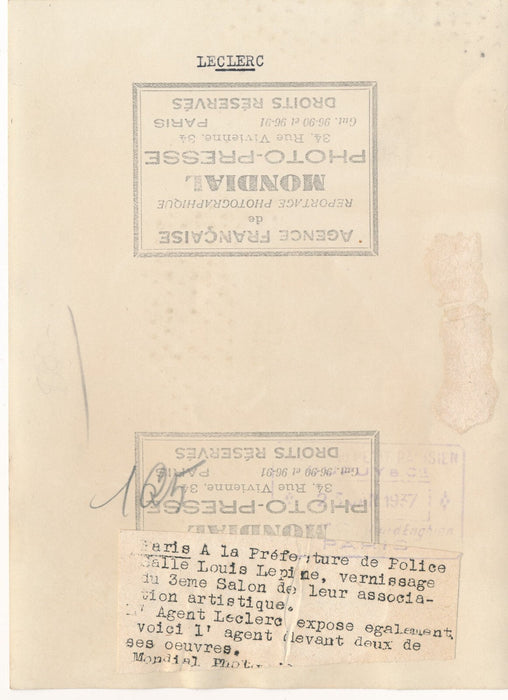 LECLERC
AGENCE FRANÇAISE
de
REPORTAGE PHOTOGRAPHIQUE
MONDIAL
PHOTO-PRESSE
34, Rue Vivienne, 34
Gut. 96-90 et 96-91 PARIS
DROITS RÉSERVÉS
MONDIAL
PHOTO-PRESSE
34, Rue Vivienne, 34
Gut. 96-90 et 96-91 PARIS
DROITS RÉSERVÉS
PARISIEN
1937
d'Enghien
PARIS
125
Paris A la Préfecture de Police
Salle Louis Lepine, vernissage
du 3eme Salon de leur associa-
tion artistique.
L' Agent Leclerc expose egalement
voici l' agent devant deux de
ses oeuvres.
Mondial Photo